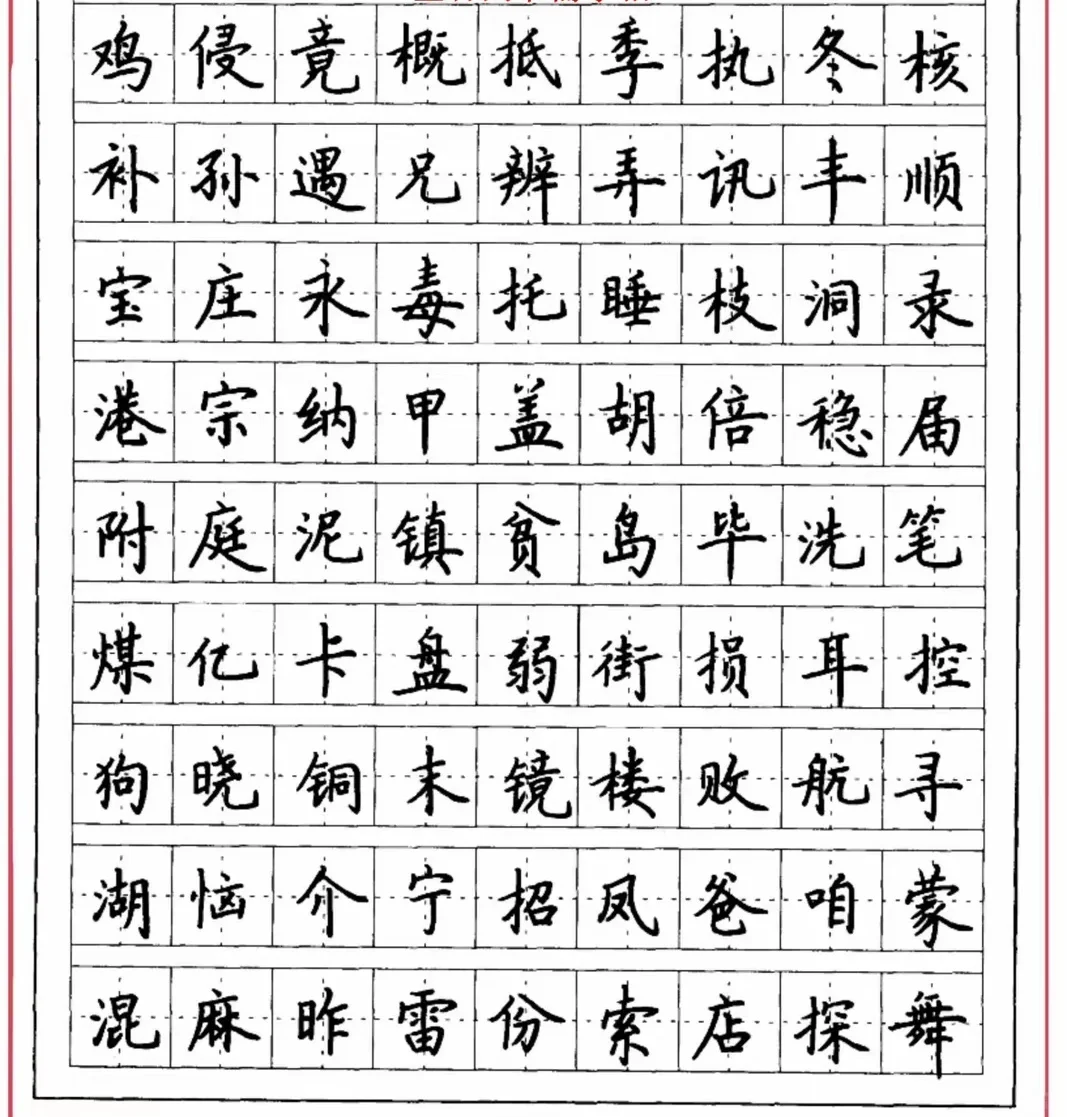 鸡侵竟概抵季执冬核
补孙遇兄辨弄讯丰顺
宝庄永毒托睡枝洞录
港宗纳甲盖胡倍稳届
附庭泥镇贫岛毕洗笔
煤亿卡盘弱街损耳控
狗晓铜末镜楼败航寻
湖恼介宁招凤爸咱蒙
混麻昨雷份索店探舞